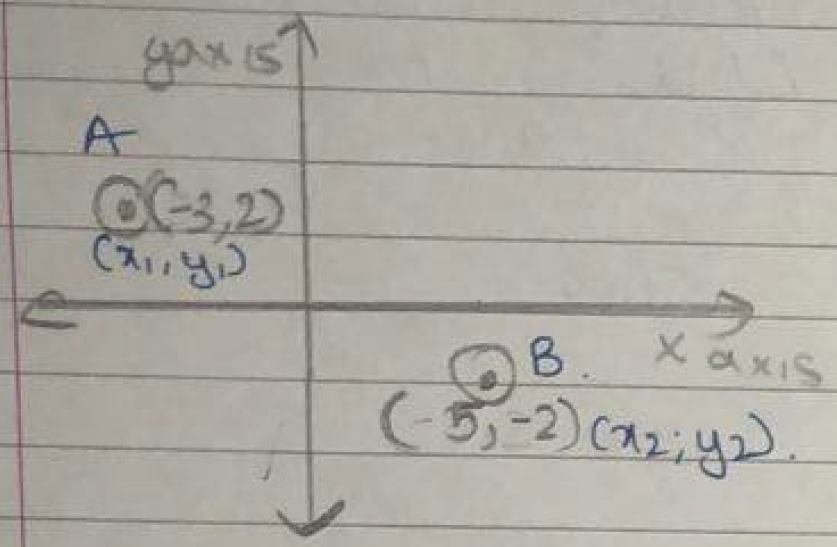 y axis
A
(-3,2)
(x₁, y₁)
B.
x axis
(-5,-2) (x₂; y₂).